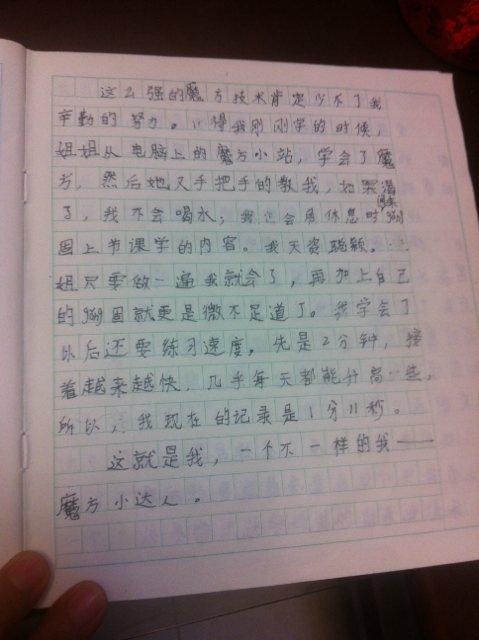 这么强的魔方技术肯定少不了我
辛勤的努力。记得我刚刚学的时候,
姐姐从电脑上的魔方小站,学会了魔
方,然后她又手把手的教我,如果渴
了,我不会喝水,我也会用休息时间来巩
固上节课学的内容。我天资聪颖,
姐只要做一遍我就会了,再加上自己
的巩固就更是微不足道了。我学会了
以后还要练习速度,先是2分钟,接
着越来越快,几乎每天都能升高一些,
所以,我现在的记录是1分11秒。
这就是我,一个不一样的我——
魔方小达人。